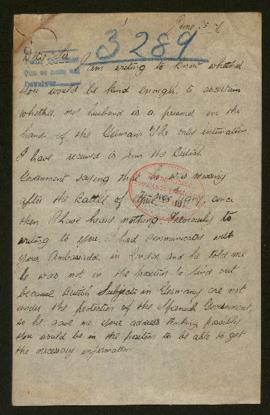 3289
Dear Sir, I am writing to know whether
you would be kind enough to ascertain
whether my husband is a prisoner in the
hands of the Germans. The only intimation
I have received is from the British
Government saying that he was missing
after the Battle of April 1917, since
then I have heard nothing. Previously to
writing to you, I had communicated with
your Ambassador, in London, and he told me
he was not in the position to find out
because British Subjects in Germany are not
under the protection of the Spanish Government,
so he gave me your address thinking possibly
you would be in the position to be able to get
the necessary information